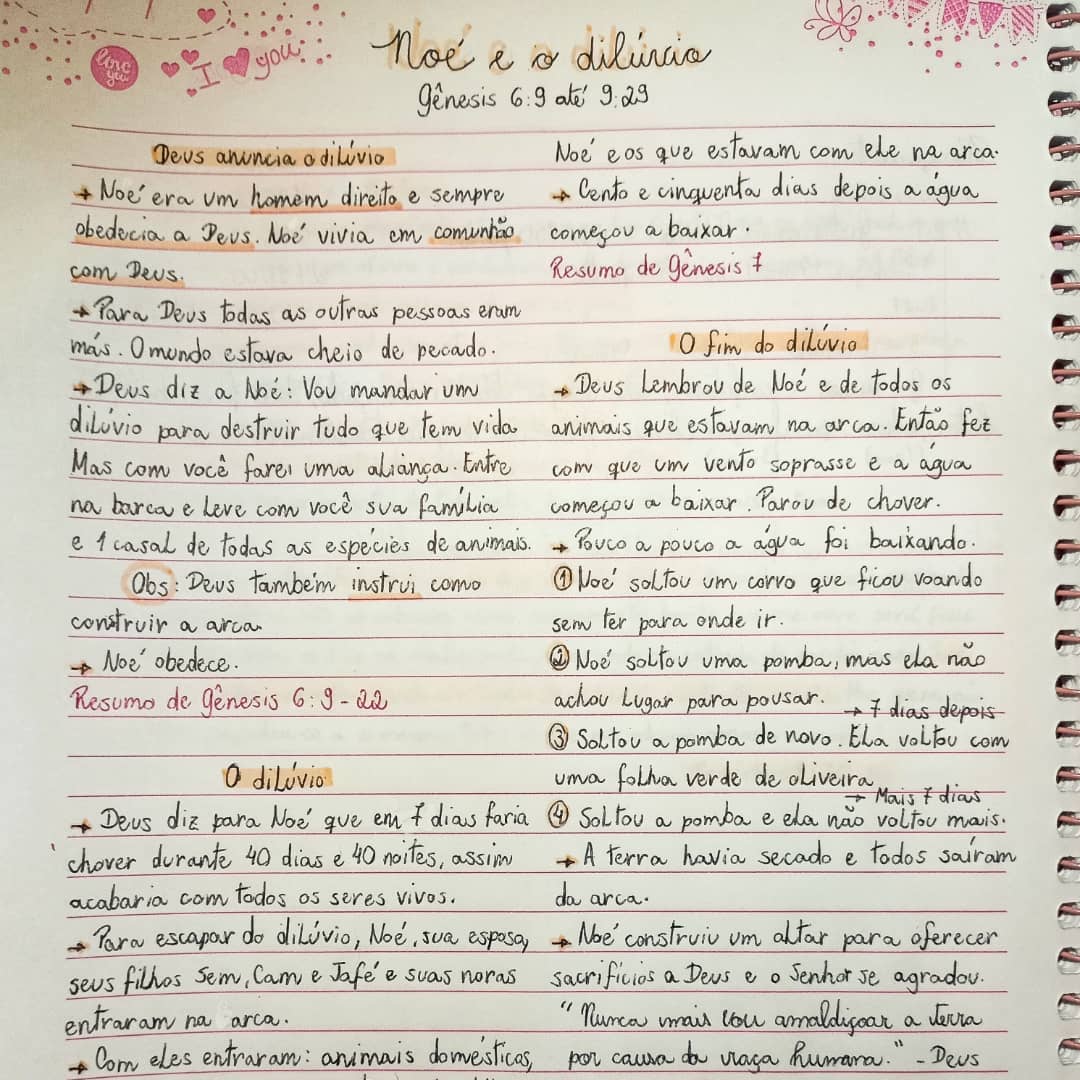 love you
I you
Noé e o dilúvio
Gênesis 6:9 até 9:29
Deus anuncia o dilúvio
→ Noé era um homem direito e sempre
obedecia a Deus. Noé vivia em comunhão
com Deus.
→ Para Deus todas as outras pessoas eram
más. O mundo estava cheio de pecado.
→ Deus diz a Noé: Vou mandar um
dilúvio para destruir tudo que tem vida
Mas com você farei uma aliança. Entre
na barca e leve com você sua família
e 1 casal de todas as espécies de animais.
Obs: Deus também instrui como
construir a arca.
→ Noé obedece.
Resumo de Gênesis 6:9-22
O dilúvio
→ Deus diz para Noé que em 7 dias faria
chover durante 40 dias e 40 noites, assim
acabaria com todos os seres vivos.
→ Para escapar do dilúvio, Noé, sua esposa,
seus filhos Sem, Cam e Jafé e suas noras
entraram na arca.
→ Com eles entraram: animais domésticas,
Noé e os que estavam com ele na arca.
→ Cento e cinquenta dias depois a água
começou a baixar.
Resumo de Gênesis 7
O fim do dilúvio
→ Deus lembrou de Noé e de todos os
animais que estavam na arca. Então fez
com que um vento soprasse e a água
começou a baixar. Parou de chover.
→ Pouco a pouco a água foi baixando.
① Noé soltou um corvo que ficou voando
sem ter para onde ir.
② Noé soltou uma pomba, mas ela não
achou lugar para pousar.
→ 7 dias depois
③ Soltou a pomba de novo. Ela voltou com
uma folha verde de oliveira
→ Mais 7 dias
④ Soltou a pomba e ela não voltou mais.
→ A terra havia secado e todos saíram
da arca.
→ Noé construiu um altar para oferecer
sacrifícios a Deus e o Senhor se agradou.
"Nunca mais vou amaldiçoar a terra
por causa da raça humana." - Deus